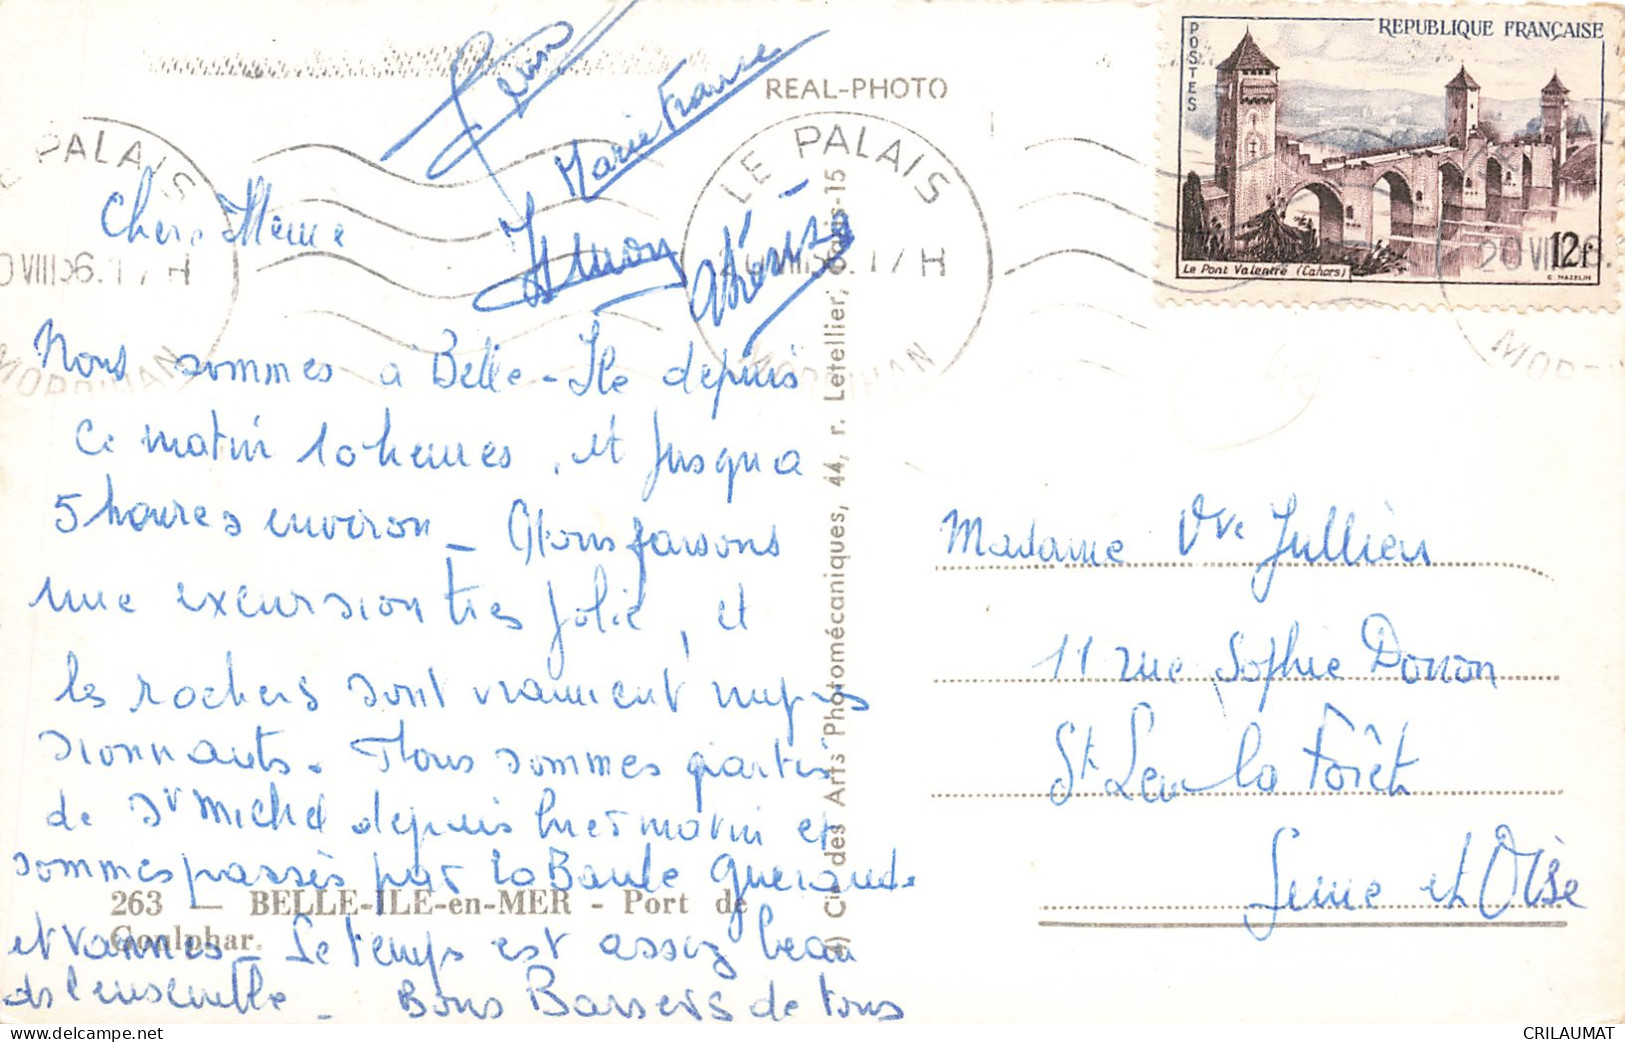 REPUBLIQUE FRANÇAISE
POSTES
12f
Le Pont Valentré (Cahors)
C. MAZELIN
REAL-PHOTO
LE PALAIS
20 VIII 56. 17 H
MORBIHAN
LE PALAIS
VIII 56. 17 H
MORBIHAN
LE PALAIS
20 VIII 56.
MORBIHAN
Marie France
Chère Meme
Nous sommes à Belle-Ile depuis
ce matin 10 heures, et jusqu'a
5 heures environ _ Nous faisons
une excursion très jolie, et
les rochers sont vraiment impres
sionnants. Nous sommes partis
de St Michel depuis hier matin et
sommes passés par la Baule Guerande
et Vannes _ Le temps est assez beau
ds l'ensemble _ Bons Baisers de tous
263 — BELLE-ILE-en-MER - Port de
Goulphar.
Cie des Arts Photomécaniques, 44, r. Letellier, Paris-15
Madame Vve Jullien
11 rue Sophie Doron
St Leu la Forêt
Seine et Oise
CRILAUMAT